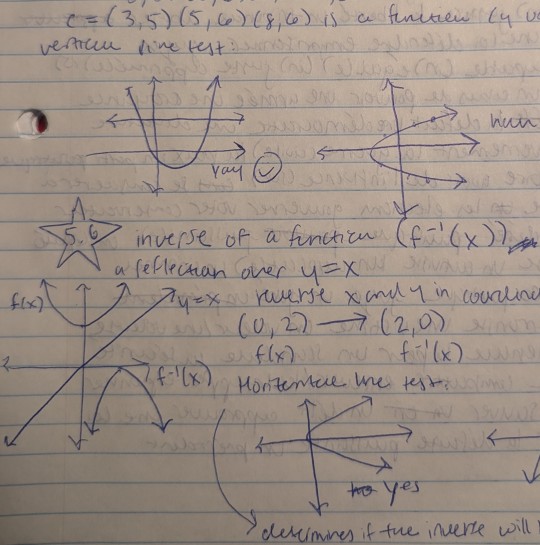 c = (3,5)(5,6)(8,6) is a function (y
vertical line test:
yay
5.6
inverse of a function (f⁻¹(x))
a reflection over y=x
f(x)
y=x
reverse x and y in coordina
(0,2) → (2,0)
f(x) f⁻¹(x)
f⁻¹(x)
Horizontal line test:
yes
determines if the inverse will